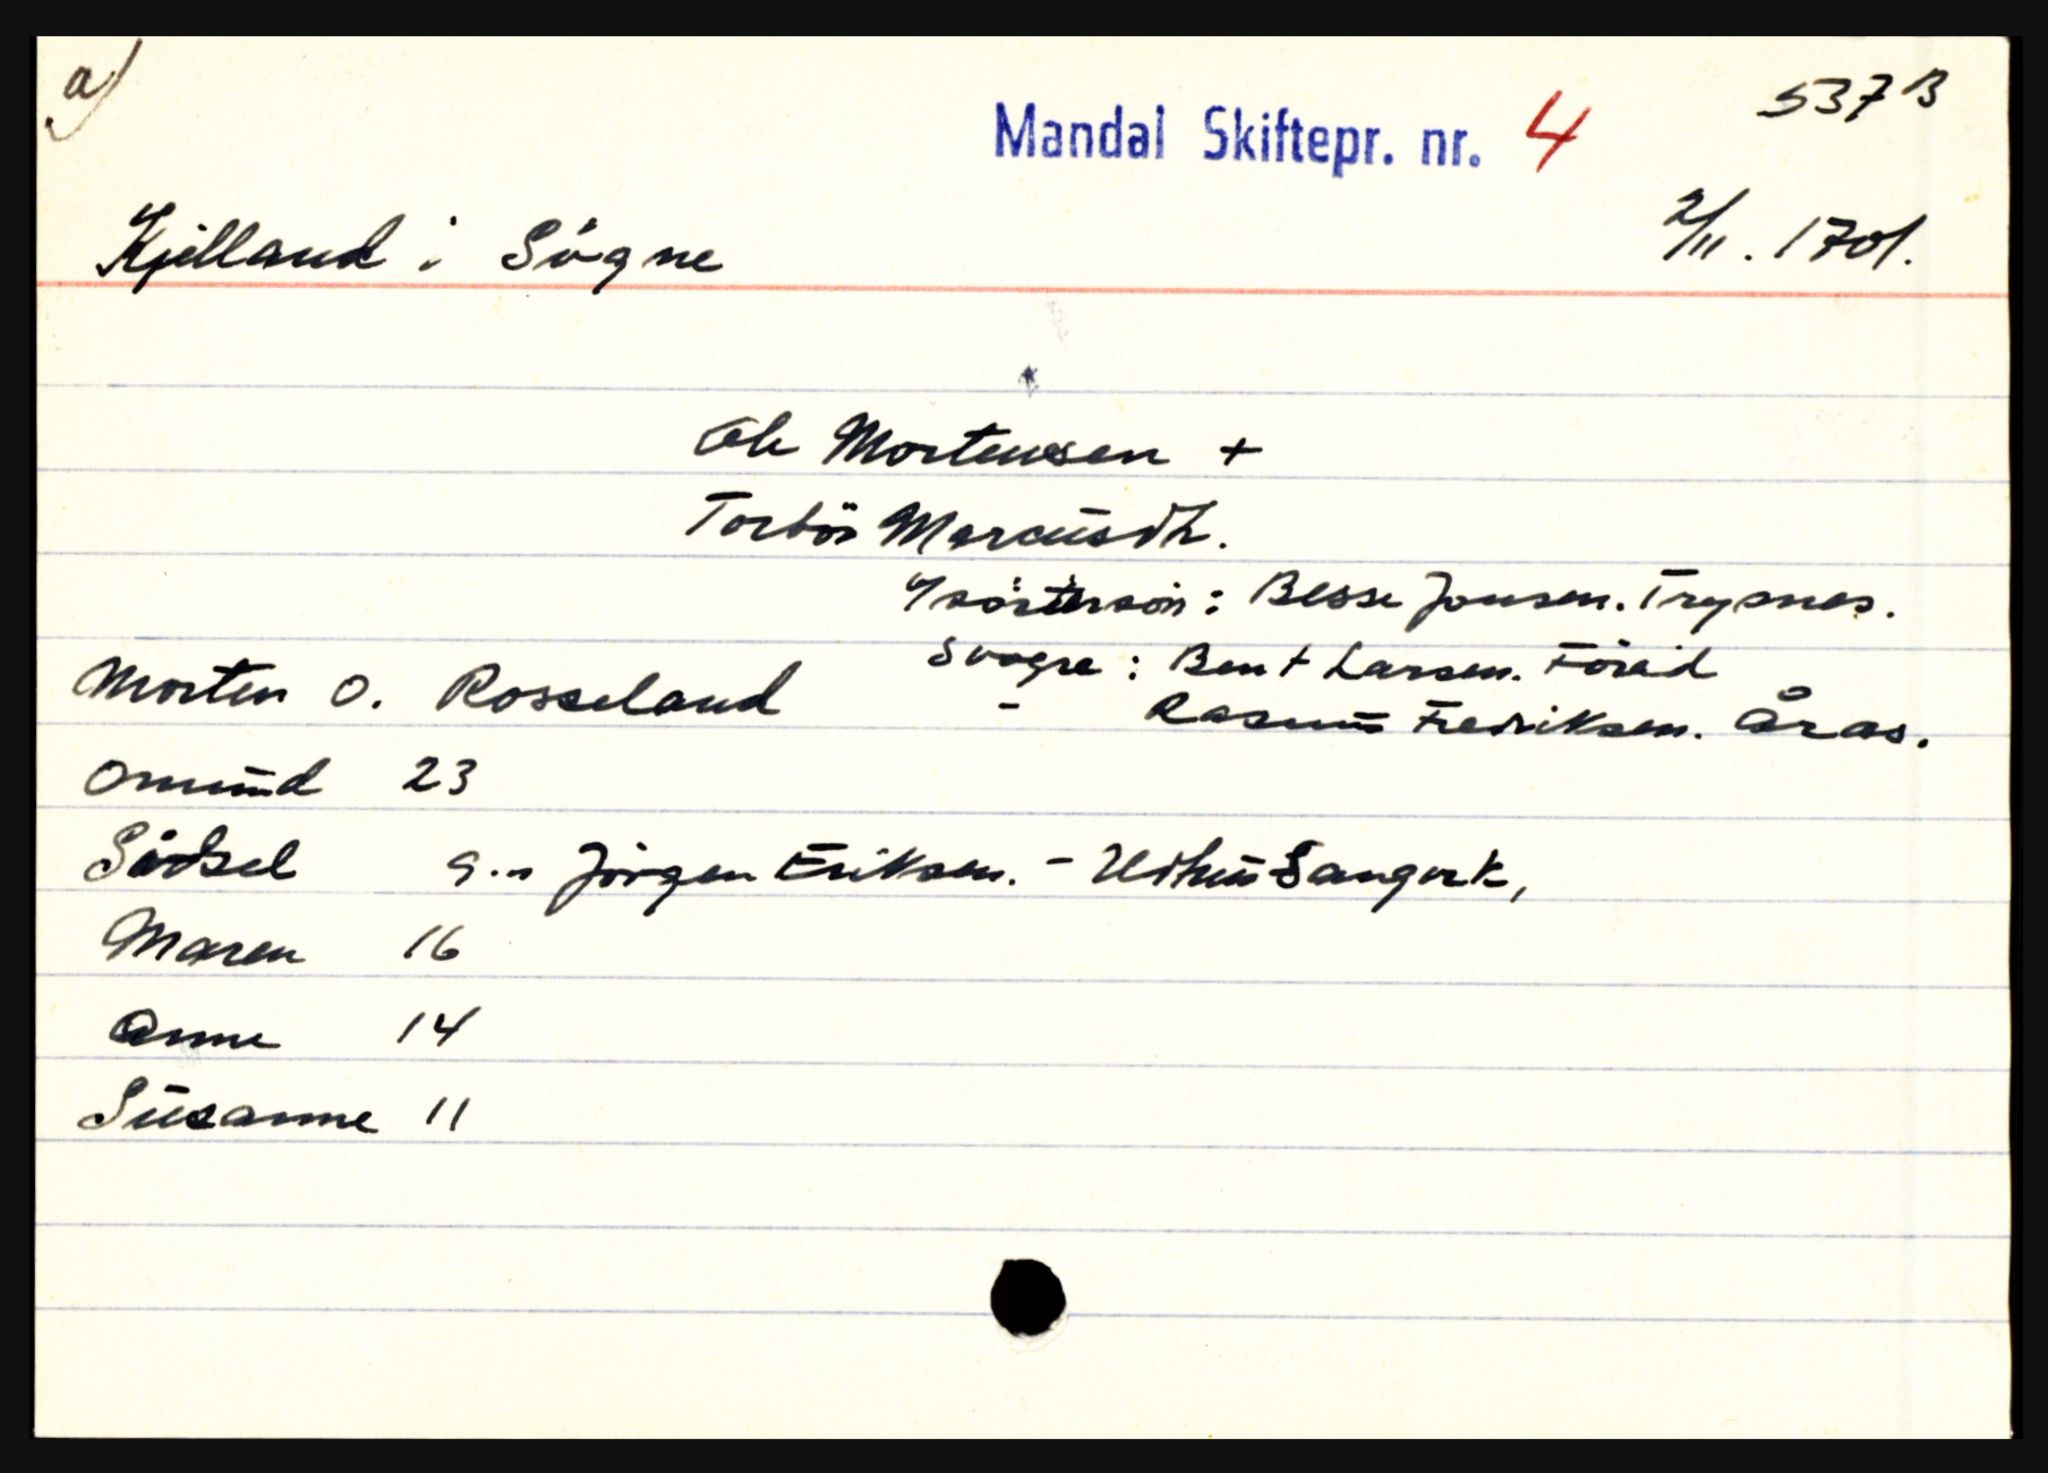 a)
537 B
Mandal Skiftepr. nr. 4
Kjelland i Søgne
2/11. 1701.
Ole Mortensen +
Torbör Marcusdt.
: Besse Jonsen. Trysnes.
Svogre : Bent Larsen. Föreid
Morten O. Rosseland
- Rasmus Fredriksen. Åras.
Omund 23
Sidsel g.m Jörgen Eriksen. -
Maren 16
Anne 14
Susanne 11